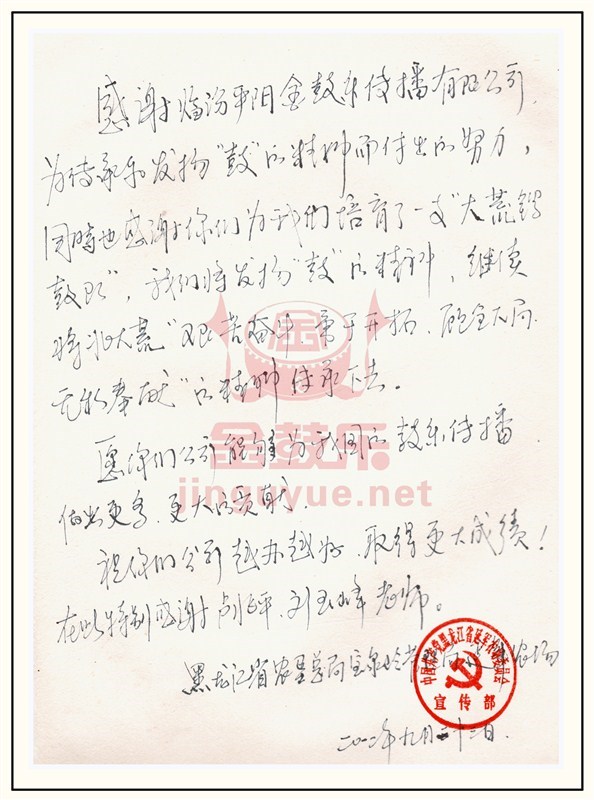 感谢临汾平阳金鼓乐传播有限公司
为传承和发扬“鼓”的精神而付出的努力，
同时也感谢你们为我们培育了一支“大荒锣
鼓队”，我们将发扬“鼓”的精神，继续
将北大荒“艰苦奋斗、勇于开拓、顾全大局、
无私奉献”的精神传承下去。
愿你们公司能够为我国的鼓乐传播
做出更多、更大的贡献。
祝你们公司越办越好，取得更大成绩！
在此特别感谢 平 刘玉峰老师。
黑龙江省农垦总局宝泉岭 农场
二〇一二年九月二十二日.
金
金鼓乐
jinguyue.net
中国共产党黑龙江省延军农场委员会
宣传部